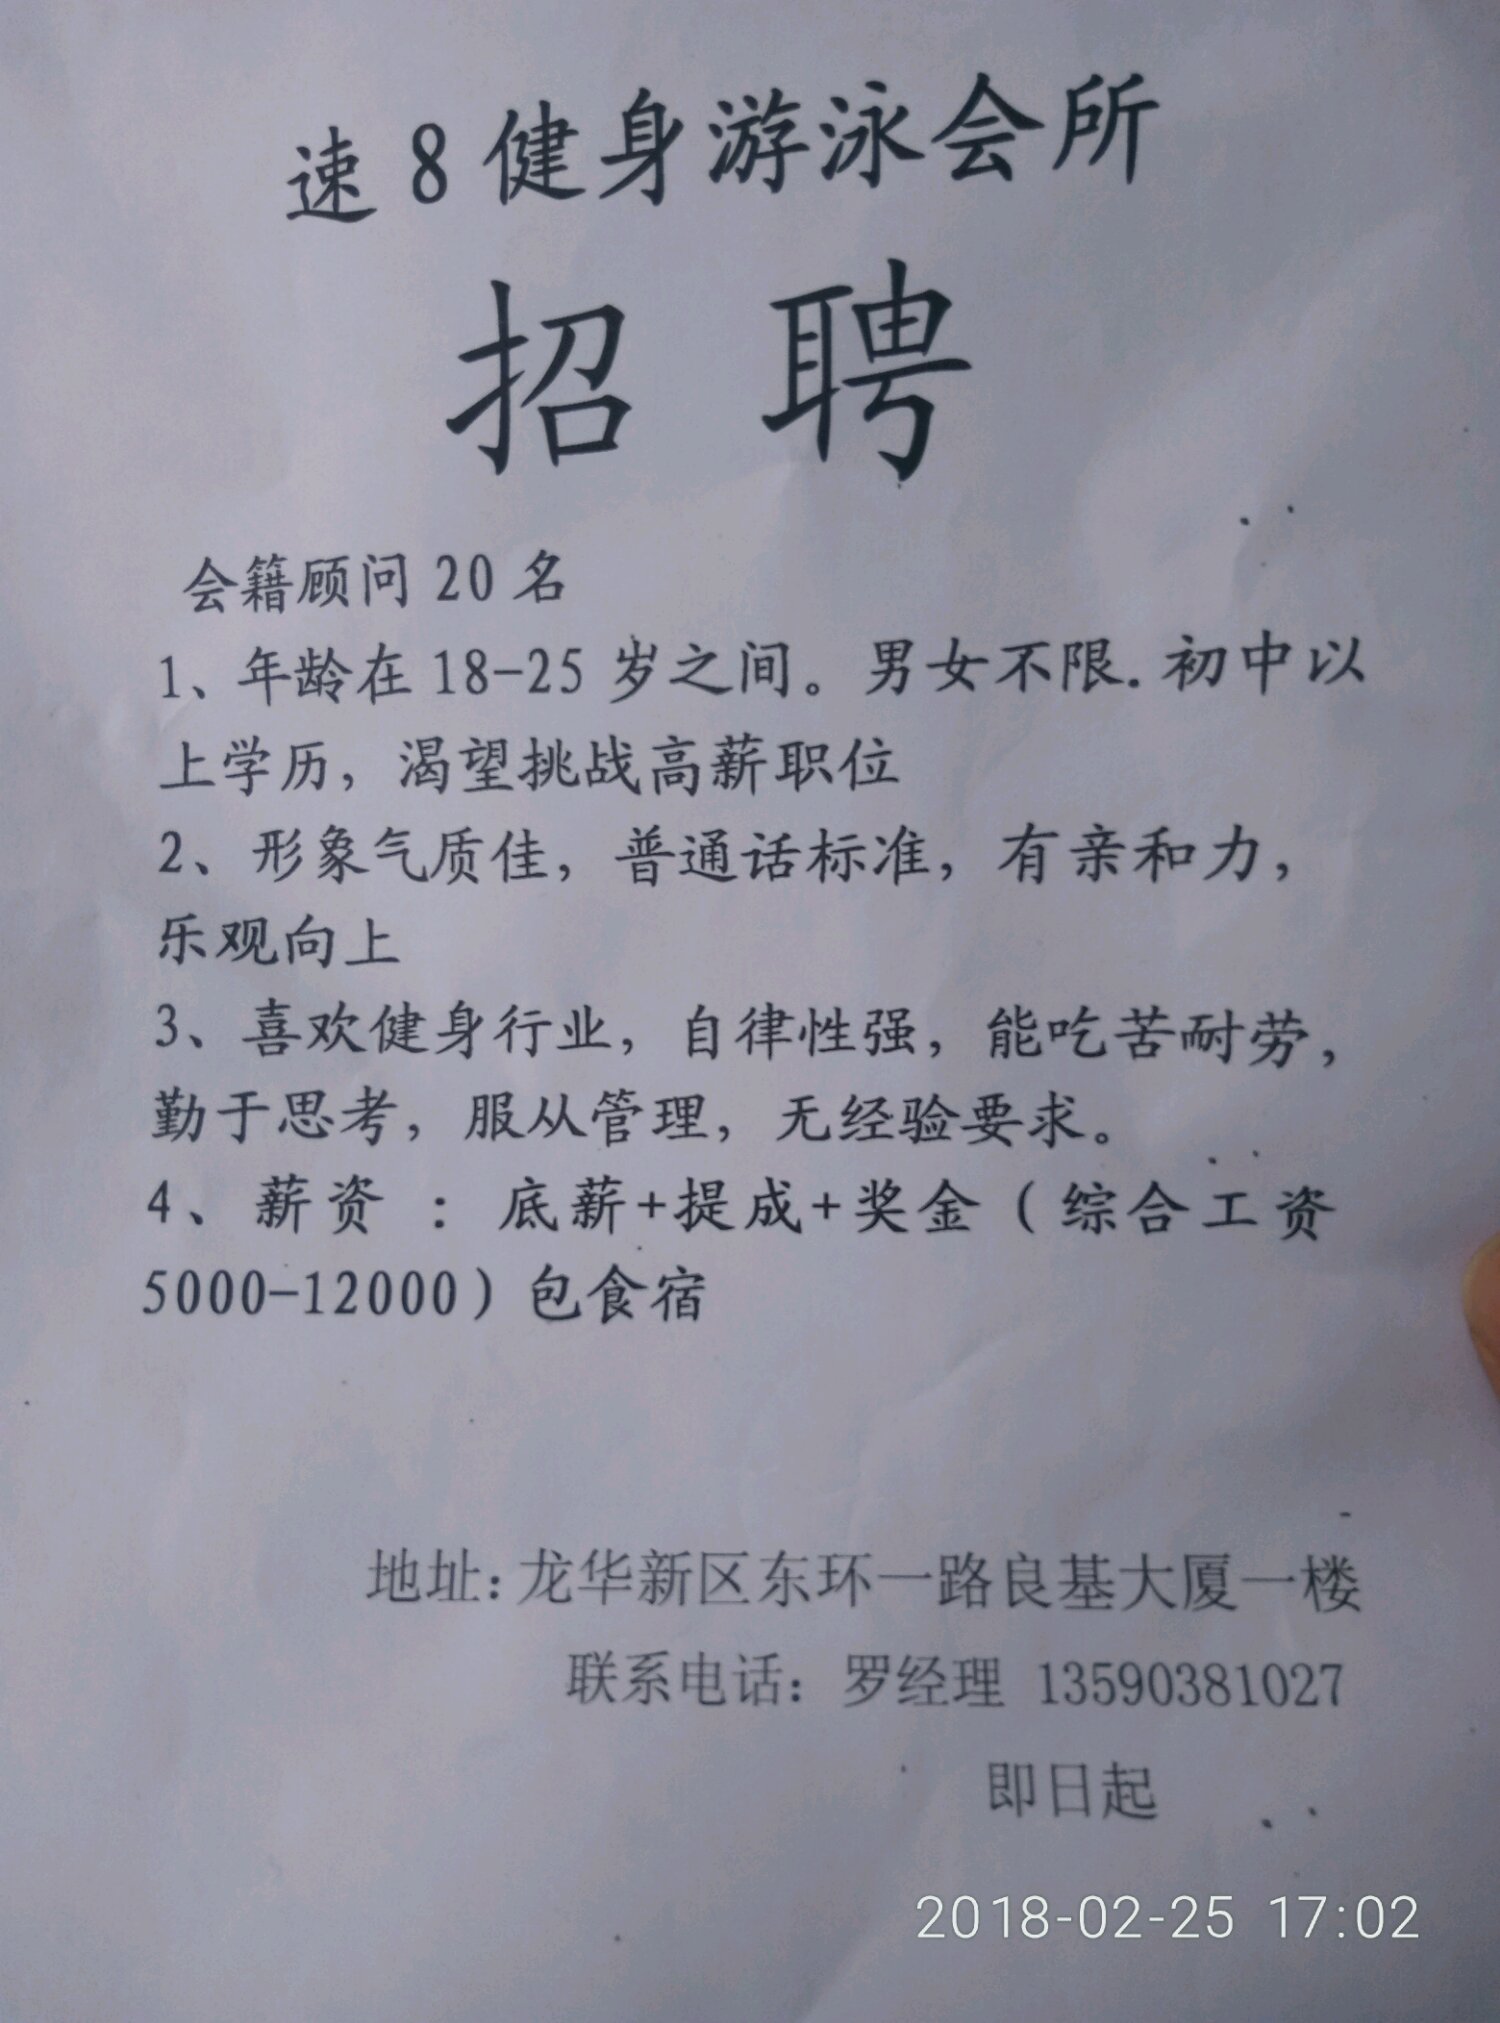 速8健身游泳会所
招 聘
会籍顾问 20 名
1、年龄在 18-25 岁之间。男女不限.初中以
上学历，渴望挑战高薪职位
2、形象气质佳，普通话标准，有亲和力，
乐观向上
3、喜欢健身行业，自律性强，能吃苦耐劳，
勤于思考，服从管理，无经验要求。
4、薪资 ：底薪+提成+奖金（综合工资
5000-12000）包食宿
地址：龙华新区东环一路良基大厦一楼
联系电话：罗经理 13590381027
即日起
2018-02-25 17:02